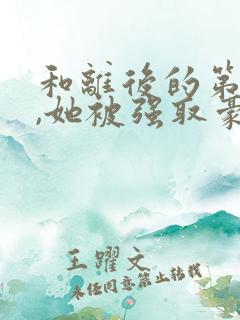 和離後的第
,她被强取豪
王躍文
未经同意禁止转载